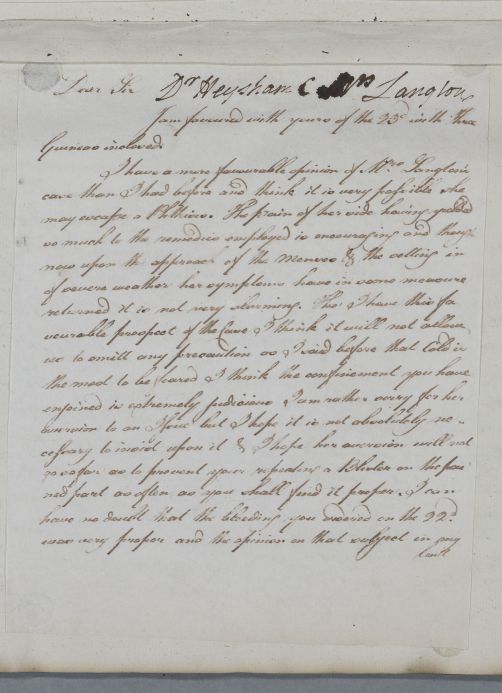 Dear Sir Dr Heysham C Mrs Langton
I am favoured with yours of the 23d with three
Guineas inclosed.
I have a more favourable opinion of Mrs Langton's
case than I had before and think it is very possible she
may escape a Phthisis. The pain of her side having yielded
so much to the remedies employed is encouraging and tho'
now upon the approach of the Menses & the setting in
of severe weather her symptoms have in some measure
returned it is not very alarming. Tho' I have this fa
vourable prospect of the Case I think it will not allow
us to omitt any precaution as I said before that Cold is
the most to be feared I think the confinement you have
enjoined is extremely judicious I am rather sorry for her
aversion to an Issue but I hope it is not absolutely ne-
cessary to insist upon it & I hope her aversion will not
go so far as to prevent your repeating a Blister on the pai
ned part as often as you shall find it proper. I can
have no doubt that the bleeding you ordered on the 22d
was very proper and the opinion on that subject in my
last